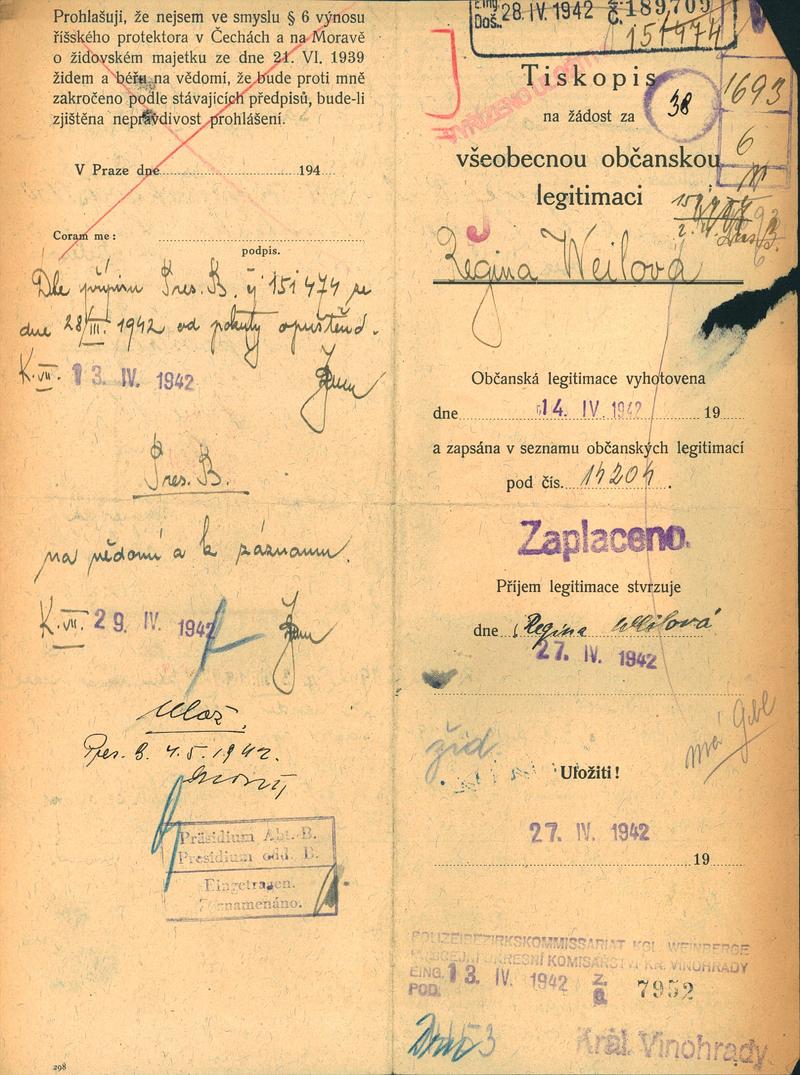 Prohlašuji, že nejsem ve smyslu § 6 výnosu
říšského protektora v Čechách a na Moravě
o židovském majetku ze dne 21. VI. 1939
židem a béřu na vědomí, že bude proti mně
zakročeno podle stávajících předpisů, bude-li
zjištěna nepravdivost prohlášení.
V Praze dne 194
Coram me:
podpis.
Dle přípisu Pres. B. čj 151474 ze
dne 28/III. 1942 od pokuty opuštěno.
K. VII. 13. IV. 1942
Pres. B.
na vědomí a k záznamu.
K. VII. 29. IV. 1942
Ulož.
Pres. B. 4.5.1942.
Präsidium Abt. B.
Presidium odd. B.
Eingetragen.
Zaznamenáno.
298
Došl. 28. IV. 1942 č. 189,709
151474
Tiskopis
38
1693
na žádost za
6
všeobecnou občanskou
legitimaci
Regina Weilová
Občanská legitimace vyhotovena
dne 14. IV. 1942 19
a zapsána v seznamu občanských legitimací
pod čís. 14204.
Zaplaceno.
Příjem legitimace stvrzuje
dne Regina Weilová
27. IV. 1942
žid
Uložiti!
27. IV. 1942
19
POLIZEIBEZIRKSKOMMISSARIAT KGL. WEINBERGE
POLICEJNÍ OKRESNÍ KOMISAŘSTVÍ KR. VINOHRADY
EING. 13. IV. 1942 Z. 7952
POD. Č.
Král. Vinohrady